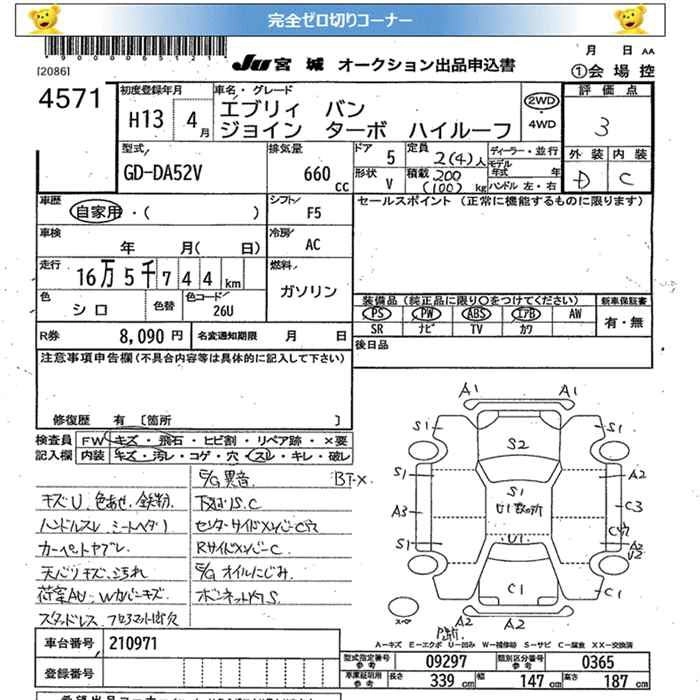 完全ゼロ切りコーナー
月 日 AA
[2086]
JU 宮城 オークション出品申込書
①会場控
4571
初度登録年月
H13 4月
車名・グレード
エブリィ バン
ジョイン ターボ ハイルーフ
2WD
・
4WD
評価点
3
外装 内装
D C
型式
GD-DA52V
排気量
660 cc
ドア 5
形状 V
定員 2(4)人
積載 200 (100) kg
ディーラー・並行
モデル年式 年
ハンドル 左・右
車歴
自家用・( )
シフト F5
セールスポイント(正常に機能するものに限ります)
車検
年 月( 日)
冷房 AC
走行
16万5千744km
燃料
ガソリン
色 シロ
色替
色コード 26U
装備品(純正品に限り○をつけてください)
新車保証書
PS PW ABS エアB AW
SR ナビ TV カワ
有・無
R券 8,090円
名変通知期限 月 日
後日品
注意事項申告欄(不具合内容等は具体的に記入して下さい)
修復歴 有 [箇所 ]
検査員 FW キズ・飛石・ヒビ割・リペア跡・×要
記入欄 内装 キズ・汚レ・コゲ・穴・スレ・キレ・破レ
E/G異音 BT-X
キズU、色あせ、鉄粉
下廻りS.C
ハンドルスレ、シートヘタリ
センターサイドメンバーC穴
カーペットヤブレ
RサイドメンバーC
天バリキズ、汚れ
E/Gオイルにじみ
荷室AU、Wカバーキズ
スタッドレス
A1 A1
S1 S1
S2
S1 A2
S1
A3 C3
U1
S1 A2
C1 C1
スペア
A2 A2
A…キズ E…エクボ U…凹み W…補修跡 S…サビ C…腐食 XX…交換済
車台番号 210971
登録番号
型式指定番号 参考 09297
類別区分番号 参考 0365
車庫証明用 参考 長さ 339cm 幅 147cm 高さ 187cm